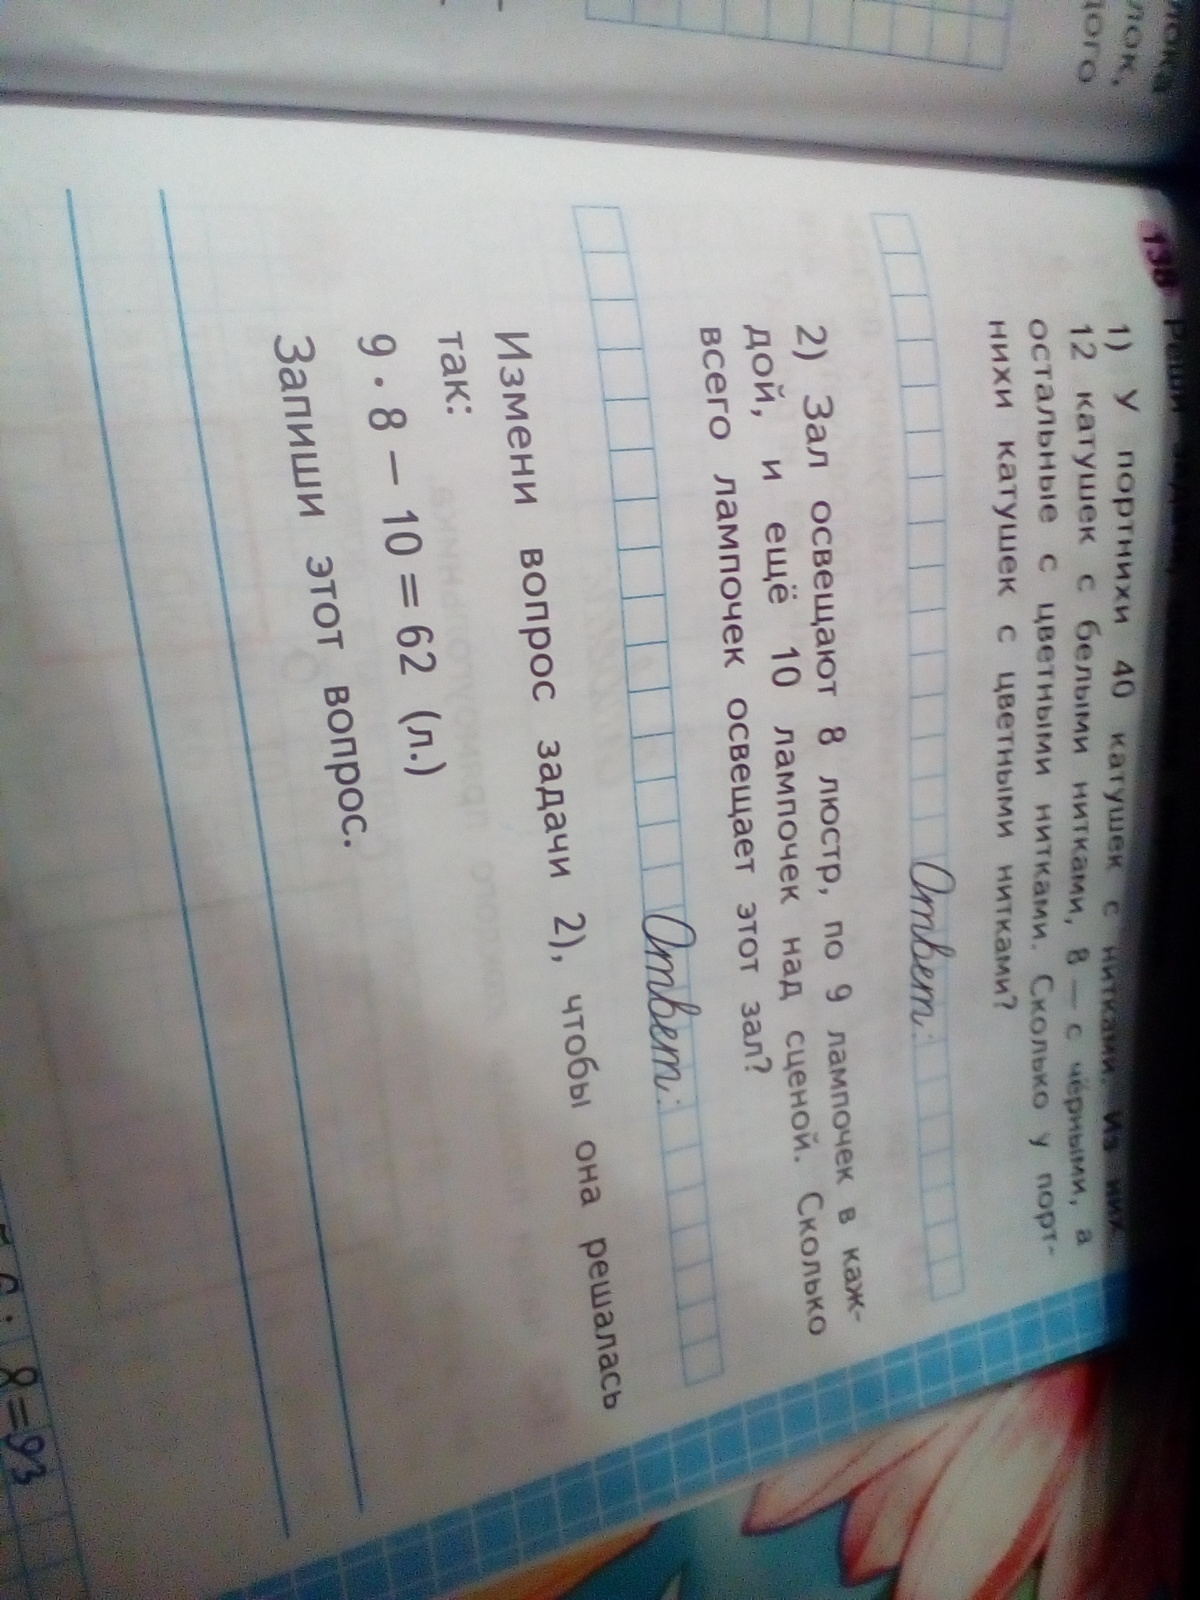 лока
лок,
дого
138 Реши
1) У портнихи 40 катушек с нитками. Из них
12 катушек с белыми нитками, 8 — с чёрными, а
остальные с цветными нитками. Сколько у порт-
нихи катушек с цветными нитками?
Ответ:
2) Зал освещают 8 люстр, по 9 лампочек в каж-
дой, и ещё 10 лампочек над сценой. Сколько
всего лампочек освещает этот зал?
Ответ:
Измени вопрос задачи 2), чтобы она решалась
так:
9 · 8 − 10 = 62 (л.)
Запиши этот вопрос.
: 8=93